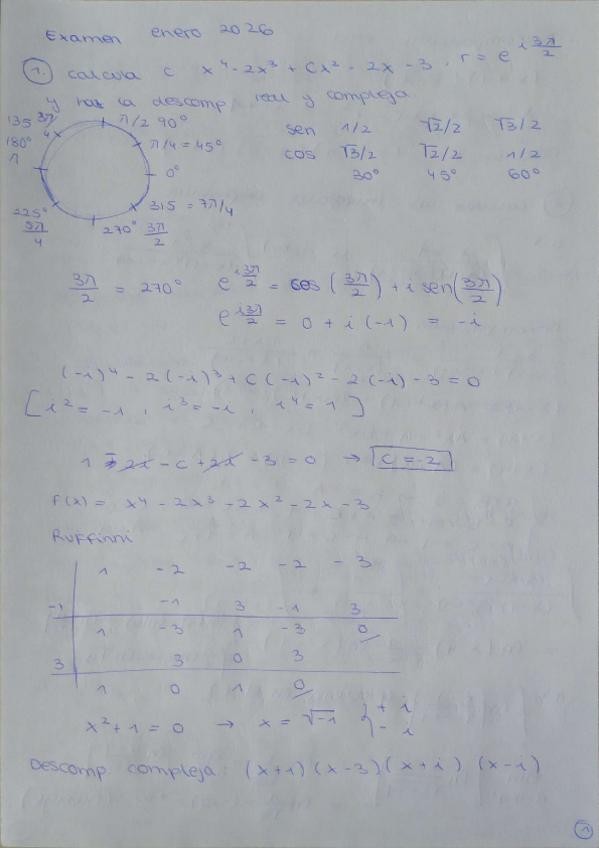 Examen enero 2026
1. calcula c x⁴ - 2x³ + Cx² - 2x - 3, r = e^(i 3π/2)
y haz la descomp real y compleja
135 3π/4
π/2 90°
180° π
π/4 = 45°
0°
225° 5π/4
315 = 7π/4
270° 3π/2
sen 1/2 √2/2 √3/2
cos √3/2 √2/2 1/2
30° 45° 60°
3π/2 = 270° e^(i 3π/2) = cos (3π/2) + i sen(3π/2)
e^(i 3π/2) = 0 + i (-1) = -i
(-i)⁴ - 2(-i)³ + C(-i)² - 2(-i) - 3 = 0
[i² = -1, i³ = -i, i⁴ = 1]
1 - 2i - C + 2i - 3 = 0 → C = -2
F(x) = x⁴ - 2x³ - 2x² - 2x - 3
Ruffinni
1 -2 -2 -2 -3
-1 -1 3 -1 3
1 -3 1 -3 0
3 3 0 3
1 0 1 0
x² + 1 = 0 → x = √-1 { + i
- i
Descomp. compleja: (x+1) (x-3) (x+i) (x-i)
1